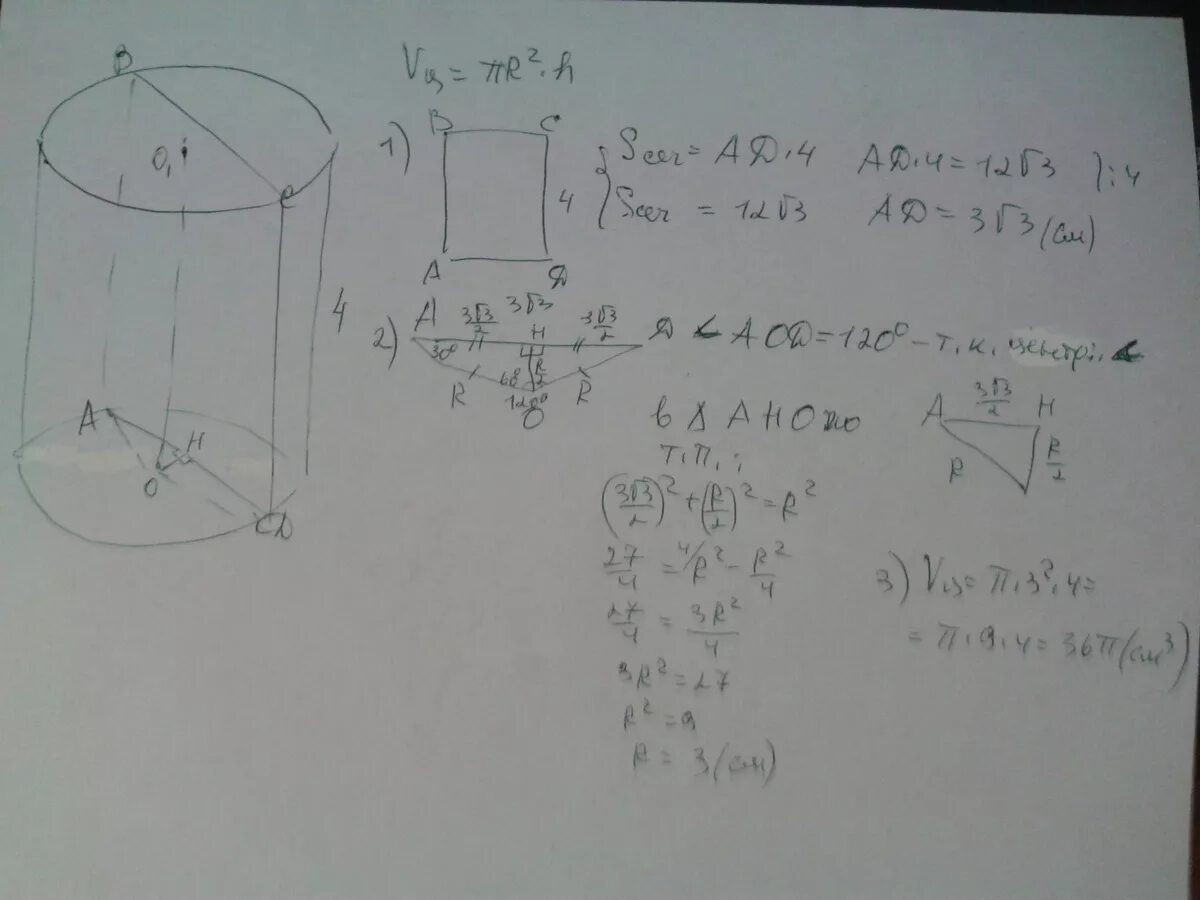 Vц = πR²·h
B
O₁
C
4
A
H
O
D
1)
B C
4
A D
{ Sсеч = AD·4 AD·4 = 12√3 ) :4
Sсеч = 12√3 AD = 3√3 (см)
2)
A 3√3/2 3√3 H 3√3/2 D
30° 60° R/2
R 120° R
O
∠AOD = 120° – т.к. центр. ∠
в Δ AHO по
т.П.:
(3√3/2)² + (R/2)² = R²
27/4 = ⁴/R² – R²/4
27/4 = 3R²/4
3R² = 27
R² = 9
R = 3 (см)
A 3√3/2 H
R R/2
3) Vц = π·3²·4 =
= π·9·4 = 36π (см³)